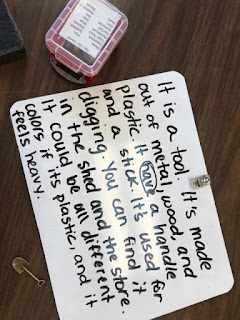 It is a tool. It's made
out of metal, wood, and
plastic. It have a handle
and a stick. It's used for
digging. You can find it
in the shed and the store.
It could be all different
colors if its plastic, and it
feels heavy.